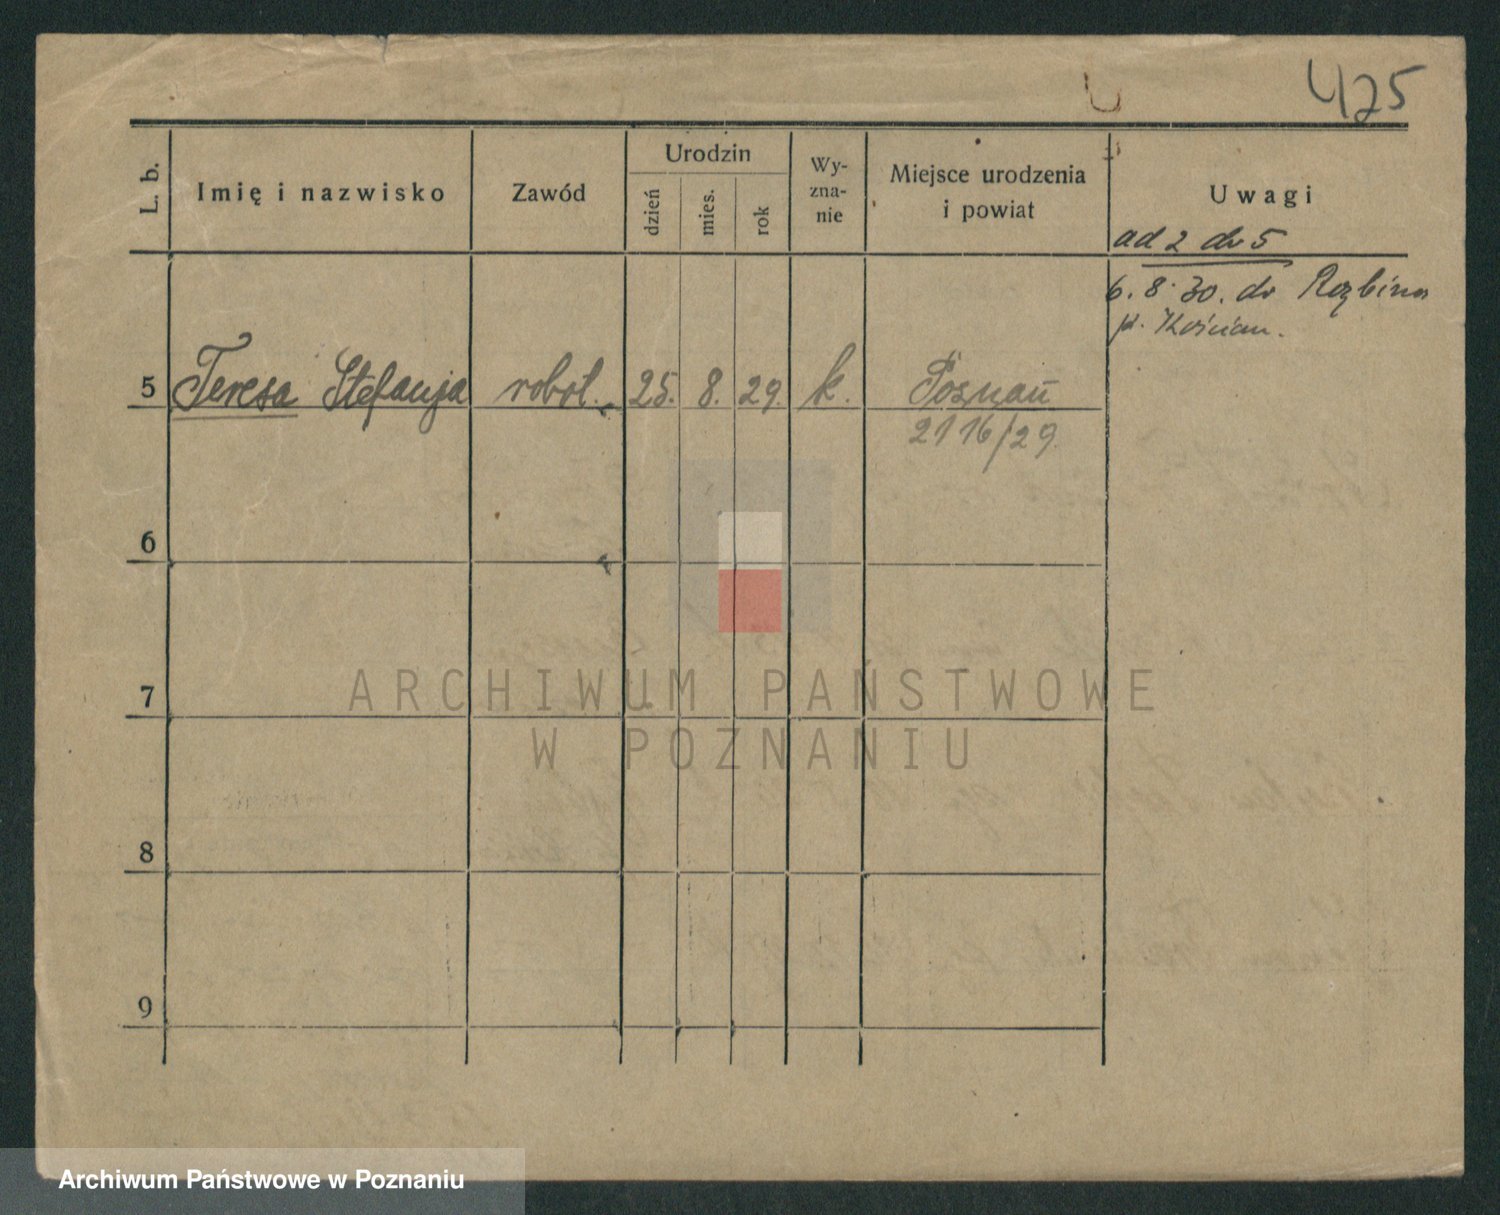 425
L. b.
Imię i nazwisko
Zawód
Urodzin
dzień
mies.
rok
Wy-
zna-
nie
Miejsce urodzenia
i powiat
Uwagi
ad 2 do 5
6. 8. 30. do
p. Kościan.
5 Teresa Stefanja robot. 25. 8. 29. k. Poznań
2116/29.
6
7
8
9
ARCHIWUM PAŃSTWOWE
W POZNANIU
Archiwum Państwowe w Poznaniu